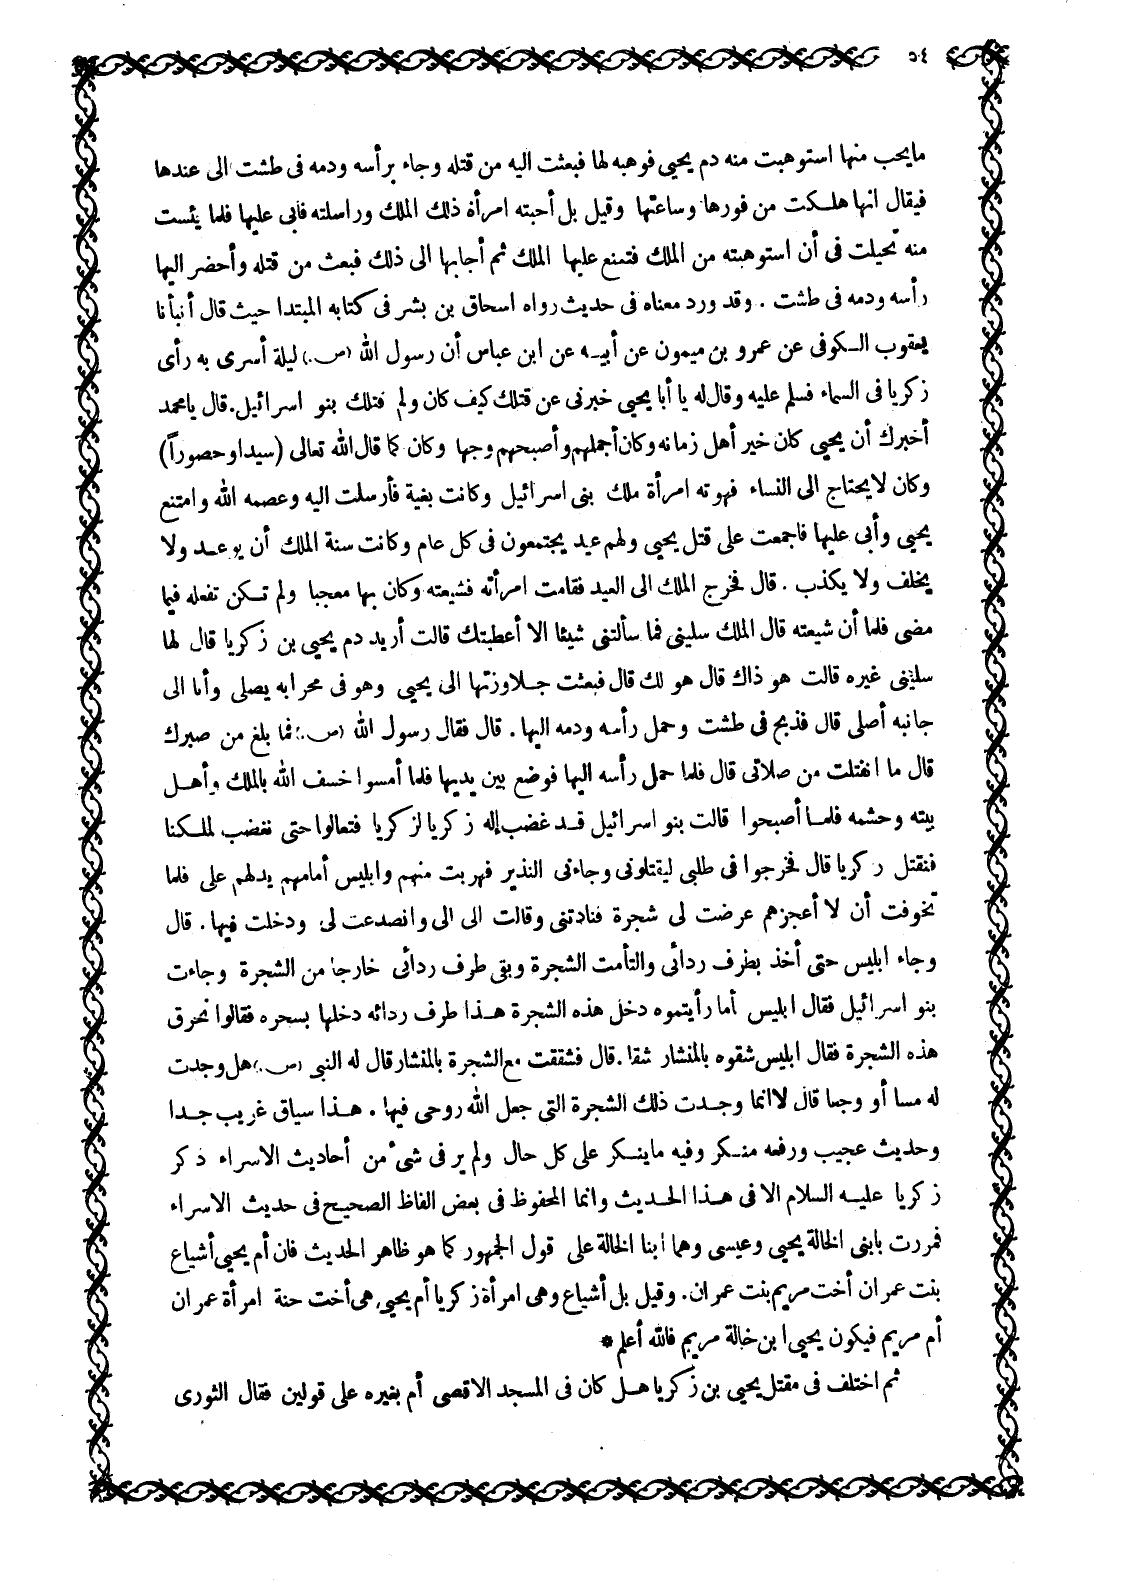 ٥٤
مايحب منها استوهبت منه دم يحيى فوهبه لها فبعثت اليه من قتله وجاء برأسه ودمه فى طشت الى عندها
فيقال انها هلكت من فورها وساعتها وقيل بل أحبته امرأة ذلك الملك وراسلته فابى عليها فلما يئست
منه تحيلت فى أن استوهبته من الملك فتمنع عليها الملك ثم أجابها الى ذلك فبعث من قتله وأحضر اليها
رأسه ودمه فى طشت . وقد ورد معناه فى حديث رواه اسحاق بن بشر فى كتابه المبتدا حيث قال أنبأنا
يعقوب الكوفى عن عمرو بن ميمون عن أبيه عن ابن عباس أن رسول الله (ص.) ليلة أسرى به رأى
زكريا فى السماء فسلم عليه وقال له يا أبا يحيى خبرنى عن قتلك كيف كان ولم قتلك بنو اسرائيل. قال يامحمد
أخبرك أن يحيى كان خير أهل زمانه وكان أجملهم وأصبحهم وجها وكان كما قال الله تعالى (سيدا وحصوراً)
وكان لايحتاج الى النساء فهوته امرأة ملك بنى اسرائيل وكانت بغية فأرسلت اليه وعصمه الله وامتنع
يحيى وأبى عليها فاجمعت على قتل يحيى ولهم عيد يجتمعون فى كل عام وكانت سنة الملك أن يوعد ولا
يخلف ولا يكذب . قال فخرج الملك الى العيد فقامت امرأته فشيعته وكان بها معجبا ولم تكن تفعله فيما
مضى فلما أن شيعته قال الملك سلينى فما سألتنى شيئا الا أعطيتك قالت أريد دم يحيى بن زكريا قال لها
سلينى غيره قالت هو ذاك قال هو لك قال فبعثت جلاوزتها الى يحيى وهو فى محرابه يصلى وأنا الى
جانبه أصلى قال فذبح فى طشت وحمل رأسه ودمه اليها . قال فقال رسول الله (ص.) فما بلغ من صبرك
قال ما انفتلت من صلاتى قال فلما حمل رأسه اليها فوضع بين يديها فلما أمسوا خسف الله بالملك وأهل
بيته وحشمه فلما أصبحوا قالت بنو اسرائيل قد غضب إله زكريا لزكريا فتعالوا حتى نغضب لملكنا
فنقتل زكريا قال فخرجوا فى طلبى ليقتلونى وجاءنى النذير فهربت منهم وابليس أمامهم يدلهم على فلما
تخوفت أن لا أعجزهم عرضت لى شجرة فنادتنى وقالت الى الى وانصدعت لى ودخلت فيها . قال
وجاء ابليس حتى أخذ بطرف ردائى والتأمت الشجرة وبقى طرف ردائى خارجا من الشجرة وجاءت
بنو اسرائيل فقال ابليس أما رأيتموه دخل هذه الشجرة هذا طرف ردائه دخلها بسحره فقالوا نحرق
هذه الشجرة فقال ابليس شقوه بالمنشار شقا . قال فشققت مع الشجرة بالمنشار قال له النبى (ص.) هل وجدت
له مسا أو وجعا قال لا انما وجدت ذلك الشجرة التى جعل الله روحى فيها . هذا سياق غريب جدا
وحديث عجيب ورفعه منكر وفيه ماينكر على كل حال ولم ير فى شئ من أحاديث الاسراء ذكر
زكريا عليه السلام الا فى هذا الحديث وانما المحفوظ فى بعض الفاظ الصحيح فى حديث الاسراء
فمررت بابنى الخالة يحيى وعيسى وهما ابنا الخالة على قول الجمهور كما هو ظاهر الحديث فان أم يحيى أشياع
بنت عمران أخت مريم بنت عمران. وقيل بل أشياع وهى امرأة زكريا أم يحيى هى أخت حنة امرأة عمران
أم مريم فيكون يحيى ابن خالة مريم فالله أعلم *
ثم اختلف فى مقتل يحيى بن زكريا هل كان فى المسجد الاقصى أم بغيره على قولين فقال الثورى